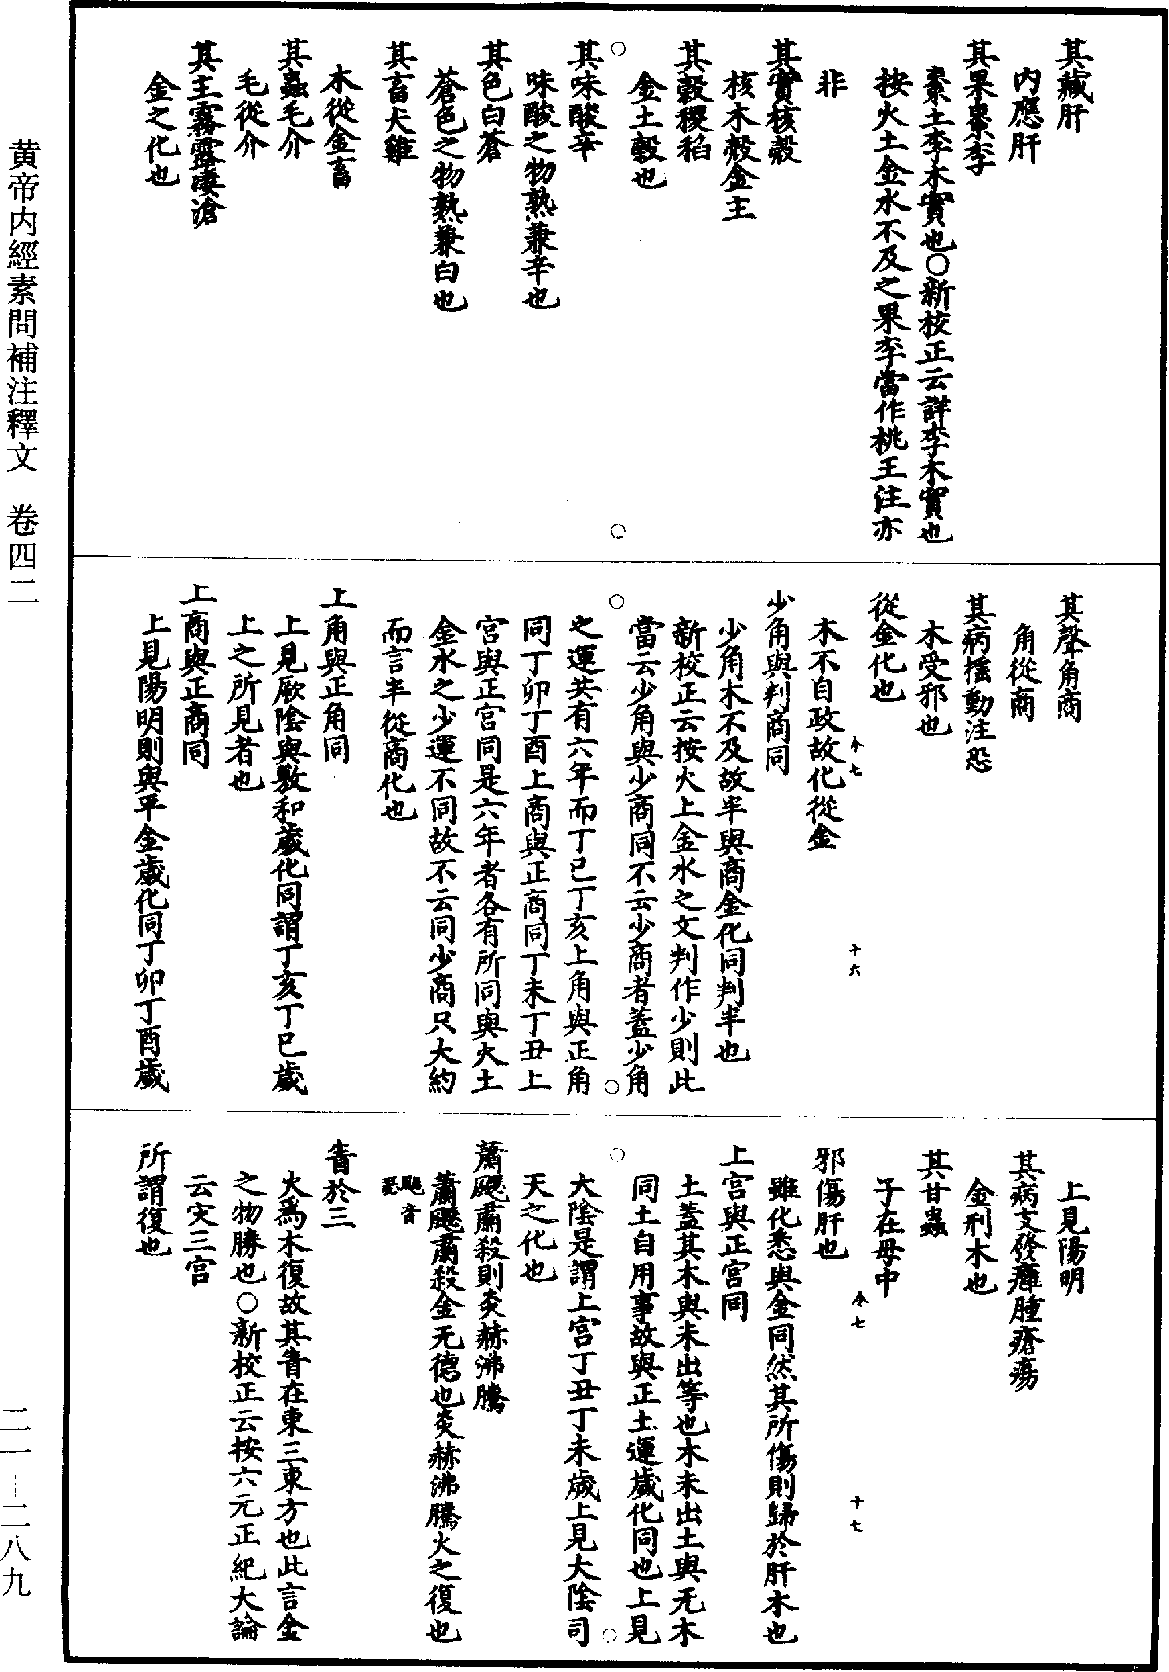 其藏肝
内應肝
其果棗李
棗土李木實也〇新校正云詳李木實也
按火土金水不及之果李當作桃王注亦
非
其實核殼
核木殼金主
其穀稷稻
金土穀也
其味酸辛
味酸之物熟兼辛也
其色白蒼
蒼色之物熟兼白也
其畜犬雞
木從金畜
其蟲毛介
毛從介
其主霧露凄滄
金之化也
其聲角商
角從商
其病摇動注恐
木受邪也
從金化也
木不自政故化從金
卷七
十六
少角與判商同
少角木不及故半與商金化同判半也
新校正云按火土金水之文判作少則此
當云少角與少商同不云少商者蓋少角
之運共有六年而丁巳丁亥上角與正角
同丁卯丁酉上商與正商同丁未丁丑上
宫與正宫同是六年者各有所同與火土
金水之少運不同故不云同少商只大約
而言半從商化也
上角與正角同
上見厥陰與敷和歲化同謂丁亥丁巳歲
上之所見者也
上商與正商同
上見陽明則與平金歲化同丁卯丁酉歲
上見陽明
其病支發癰腫瘡瘍
金刑木也
其甘蟲
子在母中
卷七
十七
邪傷肝也
雖化悉與金同然其所傷則歸於肝木也
上宫與正宫同
土蓋其木與未出等也木未出土與无木
同土自用事故與正土運歲化同也上見
太陰是謂上宫丁丑丁未歲上見大陰司
天之化也
蕭飋肅殺則炎赫沸騰
蕭飋肅殺金无德也炎赫沸騰火之復也
飋音瑟
眚於三
火爲木復故其眚在東三東方也此言金
之物勝也〇新校正云按六元正紀大論
云灾三宫
所謂復也
黄帝内經素問補注釋文 卷四二
二一—二八九